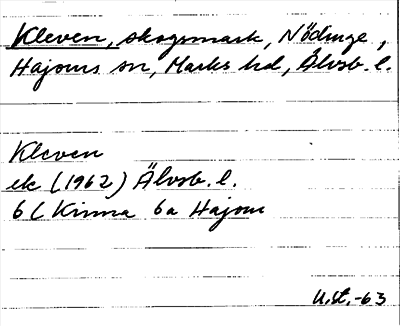 Kleven, skogsmark, Nödinge,
Hajoms sn, Marks hd, Älvsb. l.
Kleven
ek (1962) Älvsb. l.
6 C Kinna 6a Hajom
U.st.-63